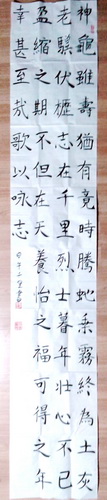 神龜雖壽猶有竟時騰蛇乘霧終為土灰
老驥伏櫪志在千里烈士暮年壯心不已
盈縮之期不但在天養怡之福可得永年
幸甚至哉歌以咏志